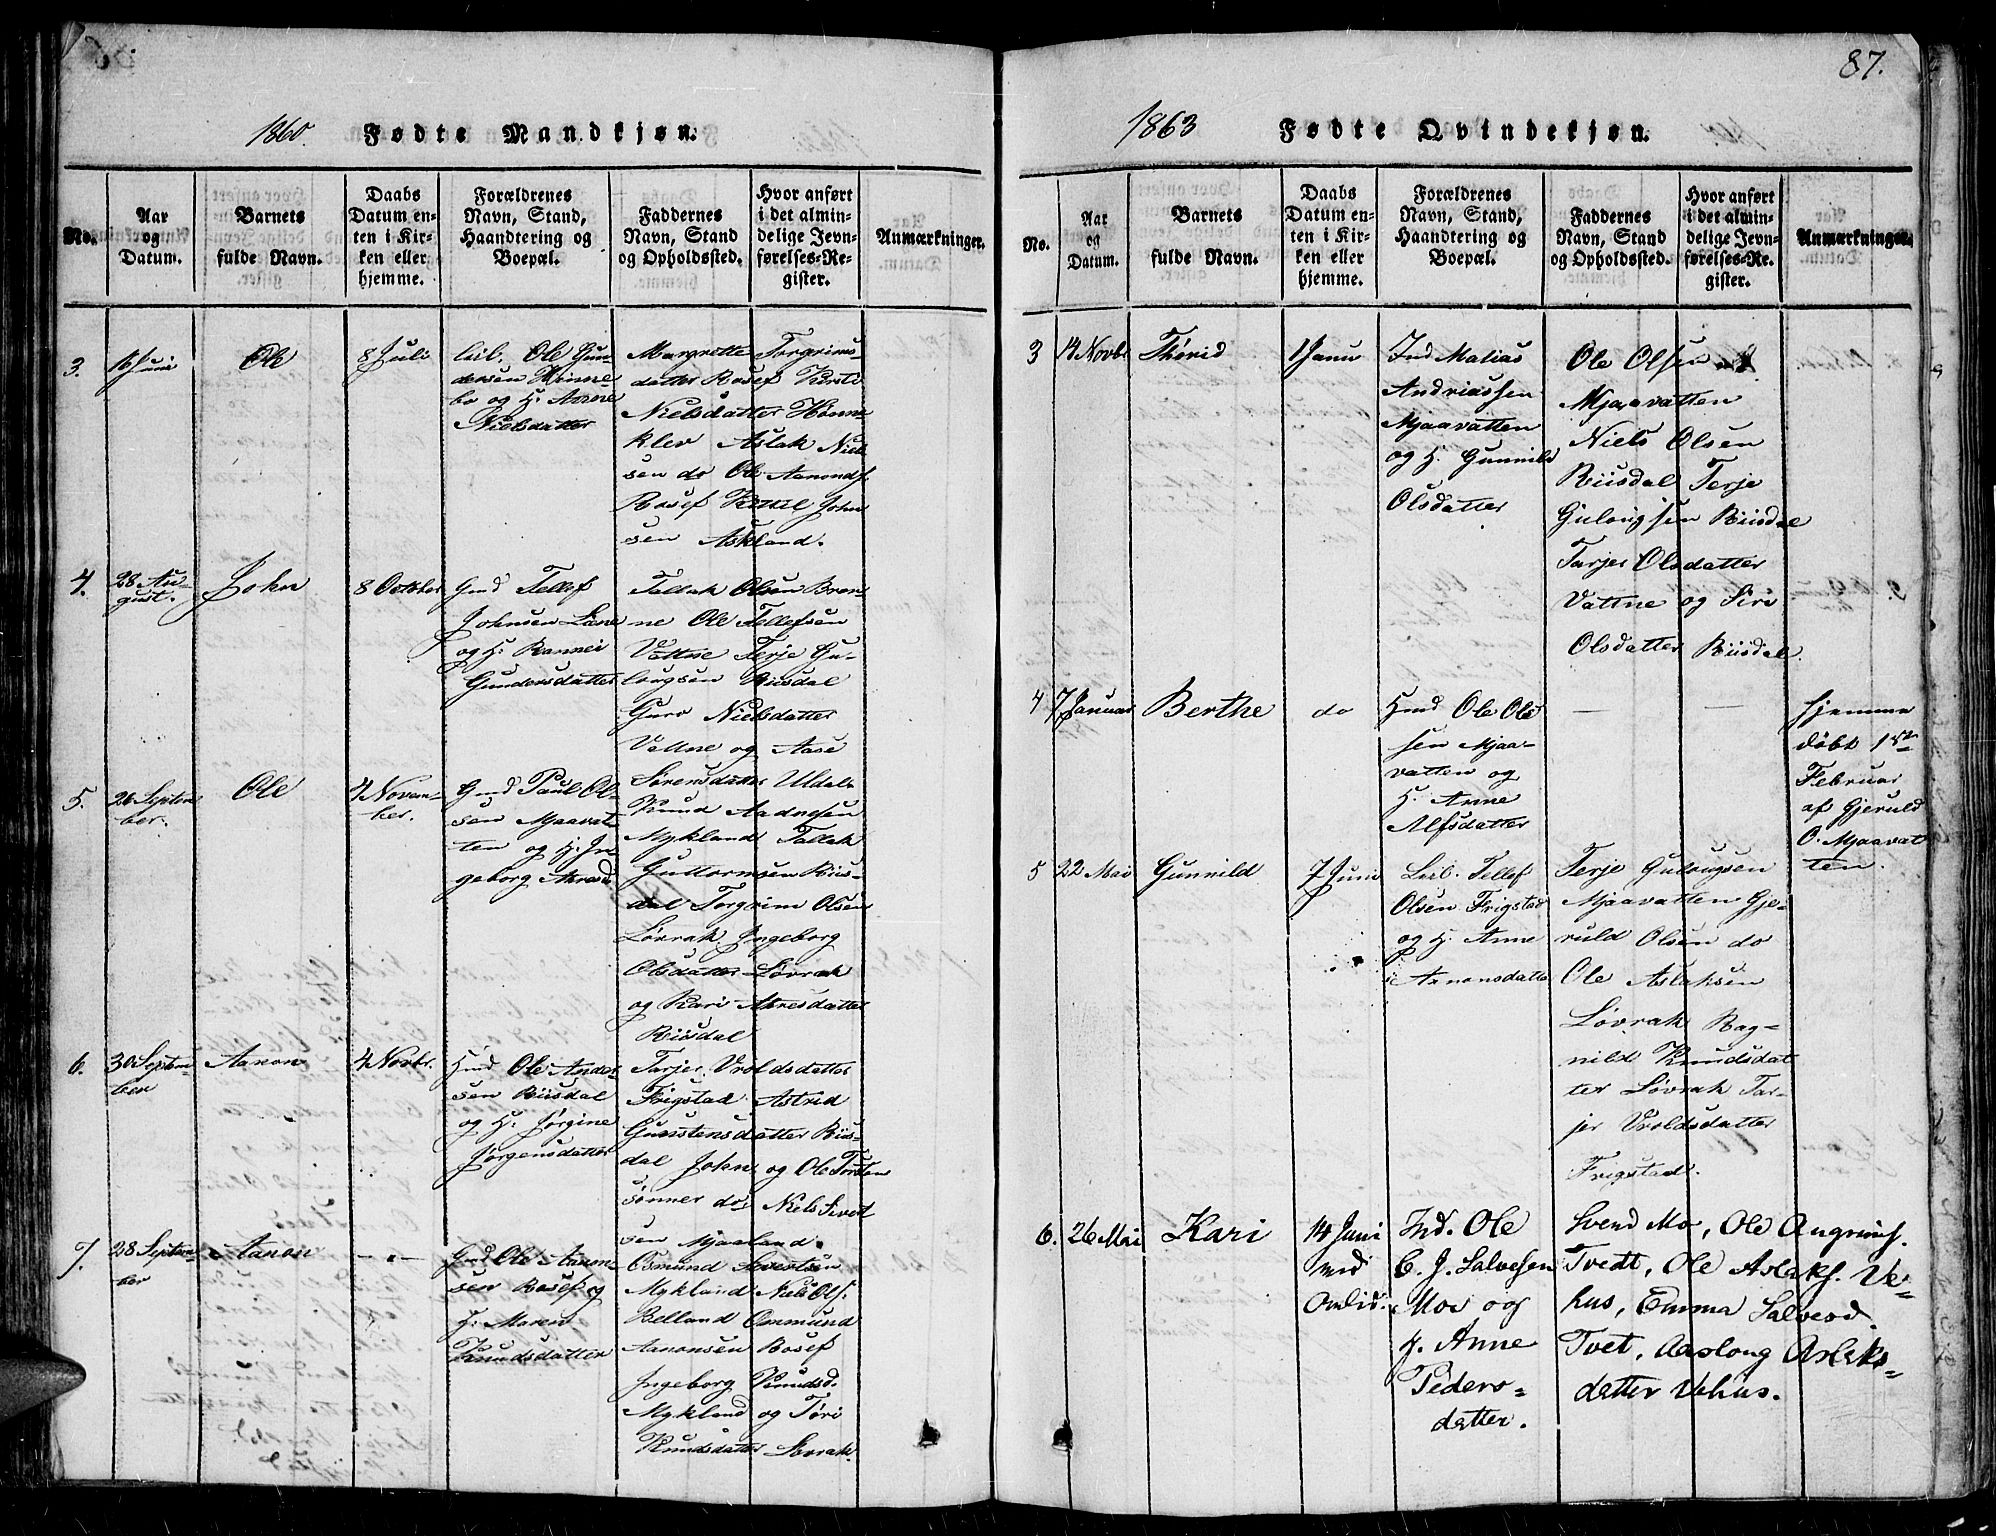 87.
1860. Fødte Mandkjøn.
No.
Aar
og
Datum.
Barnets
fulde Navn.
Daabs
Datum en-
ten i Kir-
ken eller
hjemme.
Forældrenes
Navn, Stand,
Haandtering og
Boepæl.
Faddernes
Navn, Stand
og Opholdssted.
Hvor anført
i det almin-
delige Jevn-
førelses-Re-
gister.
Anmærkninger.
3.
16 Juni
Ole
8 Juli
Ole Gun-
dersen Hinne-
bo og H. Anne
Nielsdatter
Margrette Torgrims-
datter Rosef Kersti
Nielsdatter Hønne-
klev Aslak Niel-
sen do Ole Aanonds.
Rosef Kittil John-
sen Askland.
4.
28 Au-
gust.
John
8 October
Gmd Tellef
Johnsen Lien
og H. Rannei
Gundersdatter
Tallak Olsen Bron-
ne Ole Tellefsen
Vattne Terje Gu-
lougsen Riisdal
Guro Nielsdatter
Vattne og Aase
Sørensdatter Uldal.
5.
26 Septem-
ber.
Ole
4 Novem-
ber.
Gmd Paul Ol-
sen Mjaavat-
ten og H. In-
geborg Aanesd.
Knud Aadnesen
Mykland Tallak
Guttormsen Riis-
dal Torgrim Olsen
Løvrak Ingeborg
Olsdatter Løvrak
og Kari Aanesdatter
Riisdal
6.
30 Septem-
ber
Aanon
4 Novbr.
Hmd Ole Ander-
sen Riisdal
og H. Jørgine
Jørgensdatter
Tarjer Vroldsdatter
Frigstad Astrid
Gunstensdatter Riis-
dal John og Ole Torsten
sønner do, Niels Sivert
sen Mjaaland.
7.
28 Septem-
ber
Aanon
— " —
Gmd Ole Aanon-
sen Rosef og
H. Maren
Knudsdatter
Osmund Sivertsen
Mykland Niels Ols.
Belland Ommund
Aanonsen Rosef
Ingeborg Knudsd.
Mykland og Tøri
Knudsdatter Løvrak.
1863 Fødte Qvindekjøn.
No.
Aar
og
Datum.
Barnets
fulde Navn.
Daabs
Datum en-
ten i Kir-
ken eller
hjemme.
Forældrenes
Navn, Stand,
Haandtering og
Boepæl.
Faddernes
Navn, Stand
og Opholdssted.
Hvor anført
i det almin-
delige Jevn-
førelses-Re-
gister.
Anmærkninger.
3
14 Novbr
Thørid
1 Janu
Ind Matias
Andriassen
Mjaavatten
og H. Gunnild
Olsdatter
Ole Olsen
Mjaavatten
Niels Olsen
Riisdal Terje
Gulougsen Riisdal
Tarjer Olsdatter
Vattne og Siri
Olsdatter Riisdal.
4
7 Januar
Berthe
do
Hmd Ole Ol-
sen Mjaa-
vatten og
H. Anne
Alfsdatter
—
—
hjemme
døbt 1ste
Februar
af Gjeruld
O. Mjaavat-
ten.
5
22 Mai
Gunnild
7 Juni
Leil. Tellef
Olsen Frigstad
og H. Anne
Aanonsdatter
Terje Gulougsen
Mjaavatten Gje-
ruld Olsen do
Ole Aslaksen
Løvrak Rag-
nild Knudsdat
ter Løvrak Tar-
jer Vroldsdatter
Frigstad.
6.
26 Mai
Kari
14 Juni
ved
Omlid.
Ind. Ole
C. J. Salvesen
Moe og
H. Anne
Peders-
datter.
Svend Mo, Ole Angrims.
Tvedt, Ole Aslaks. Ve-
hus, Emma Salvesd.
Tvet, Aaslong Aslaks-
datter Vehus.